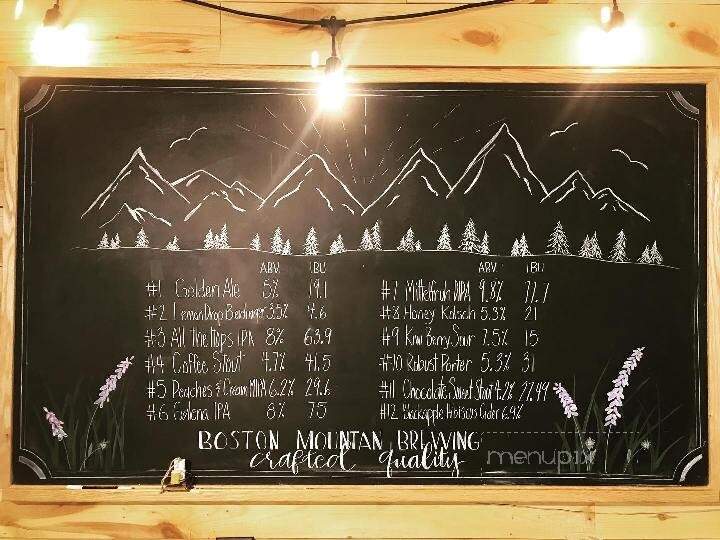 ABV IBU
#1 Golden Ale 5% 19.1
#2 Lemon Drop 3.5% 4.6
#3 All The Hops IPA 8% 63.9
#4 Coffee Stout 4.7% 41.5
#5 Peaches & Cream 6.2% 29.6
#6 Galena IPA 8% 75
ABV IBU
#7 9.8% 77.7
#8 Honey Kolsch 5.3% 21
#9 Kiwi Berry Sour 7.5% 15
#10 Robust Porter 5.3% 31
#11 Chocolate Sweet Stout 4.2% 27.49
#12 Blackapple Hibiscus Cider 6.9%
BOSTON MOUNTAN BREWING
crafted quality
menupix